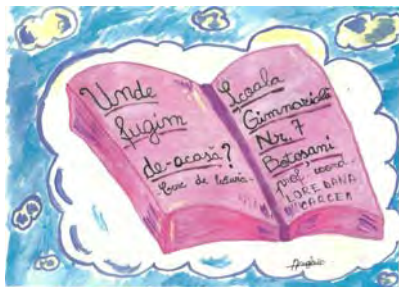 Unde
fugim
de-acasă?
de lectură
Școala
Gimnazială
Nr. 7
Botoșani
prof. coord.
LOREDANA
CARCEA